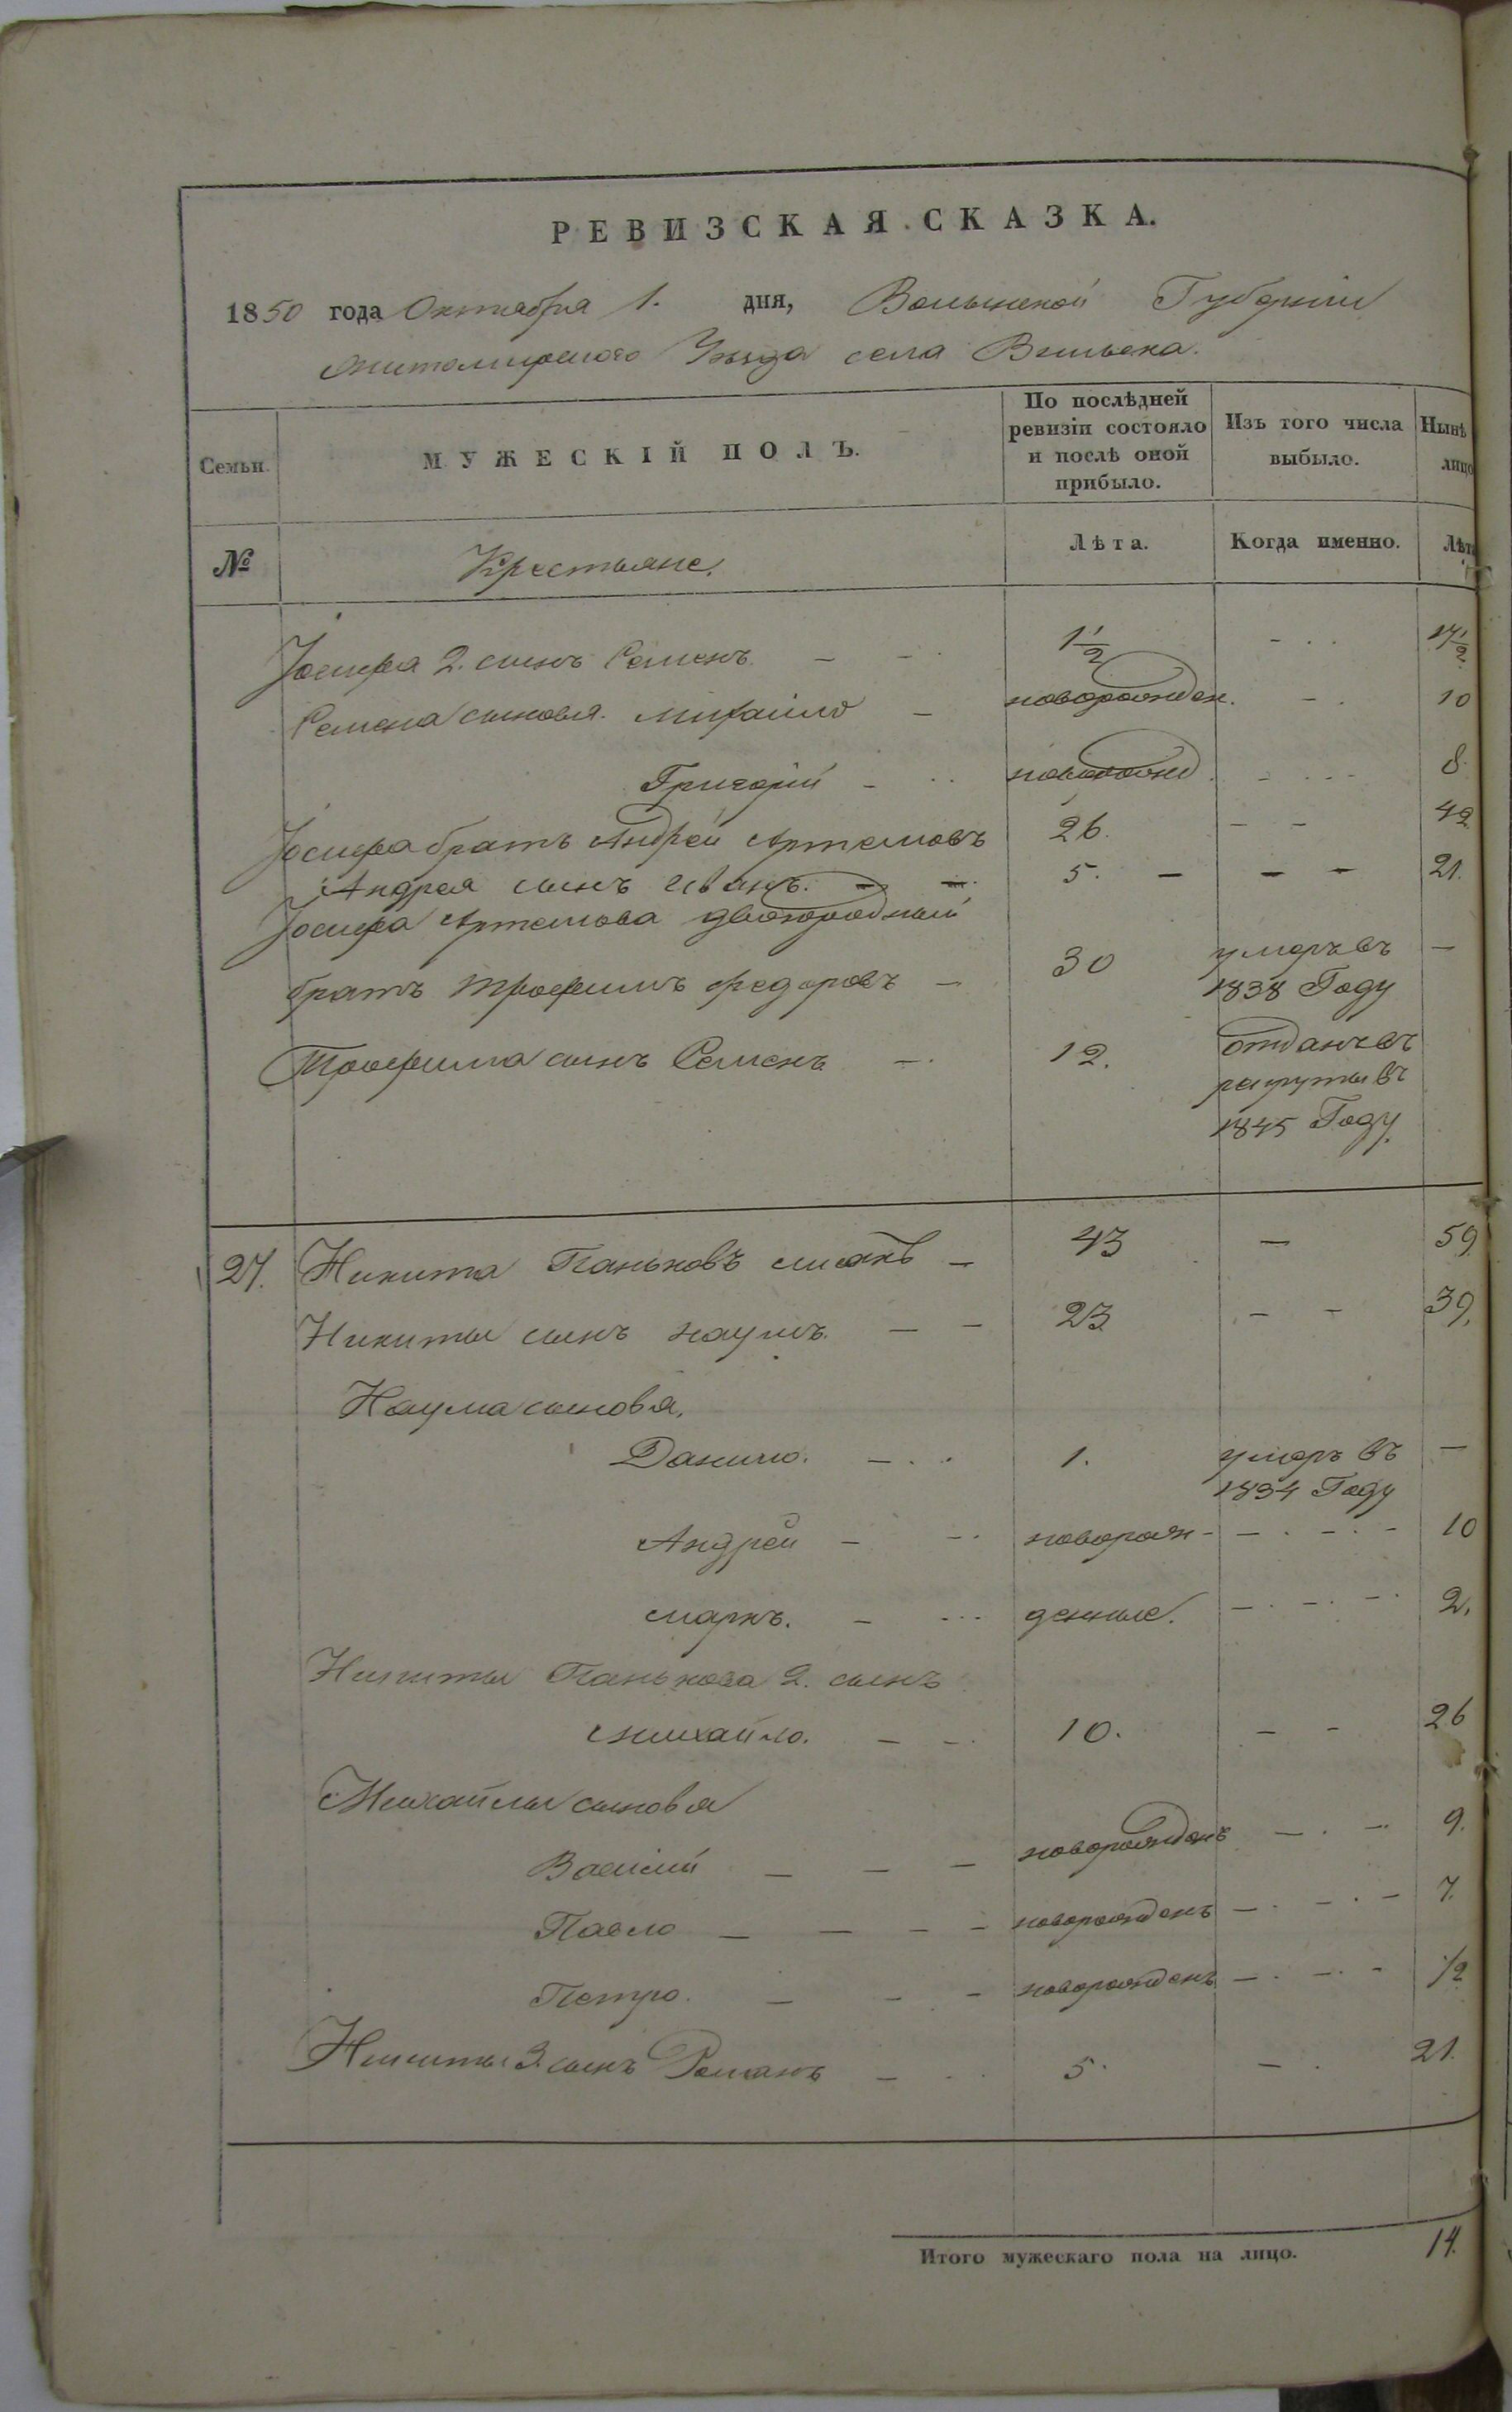 РЕВИЗСКАЯ СКАЗКА.
1850 года Октября 1. дня, Волынской Губерніи
Житомирского Уезда села Вильска.
Семьи.
МУЖЕСКІЙ ПОЛЪ.
По послѣдней ревизіи состояло и послѣ оной прибыло.
Изъ того числа выбыло.
Нынѣ лицо
№
Крестьяне.
Лѣта.
Когда именно.
Лѣта
Іосифа 2. сынъ Семенъ — — 1½ — .. 17½
Семена сыновья. Михайло — новорожден. — . 10
Григорій — .. новорожд. — ... 8.
Іосифа братъ Андрей Артемовъ 26. — — 42
Андрея сынъ Иванъ. — — 5. — — — 21.
Іосифа Артемова двоюродный
братъ Трофимъ Федоровъ — 30 умеръ въ —
1838 Году
Трофима сынъ Семенъ — . 12. отданъ въ
рекруты въ
1845 Году.
27. Никита Паньковъ — 43 — 59
Никиты сынъ Наумъ. — — 23 — — 39.
Наума сыновья.
Данило. — .. 1. умеръ въ —
1834 Году
Андрей — — . новорож- — . — . — 10
Маркъ. — ... денные. — . — . — . 2.
Никиты Панькова 2. сынъ
Михайло. — — . 10. — — 26
Михайлы сыновья
Василій — — — новорожденъ — . — . 9.
Павло — — — — новорожденъ — . — . — 7.
Петро. — — — новорожденъ — . — . — ½
Никиты 3. сынъ Романъ — .. 5. — . 21.
Итого мужескаго пола на лицо. 14.